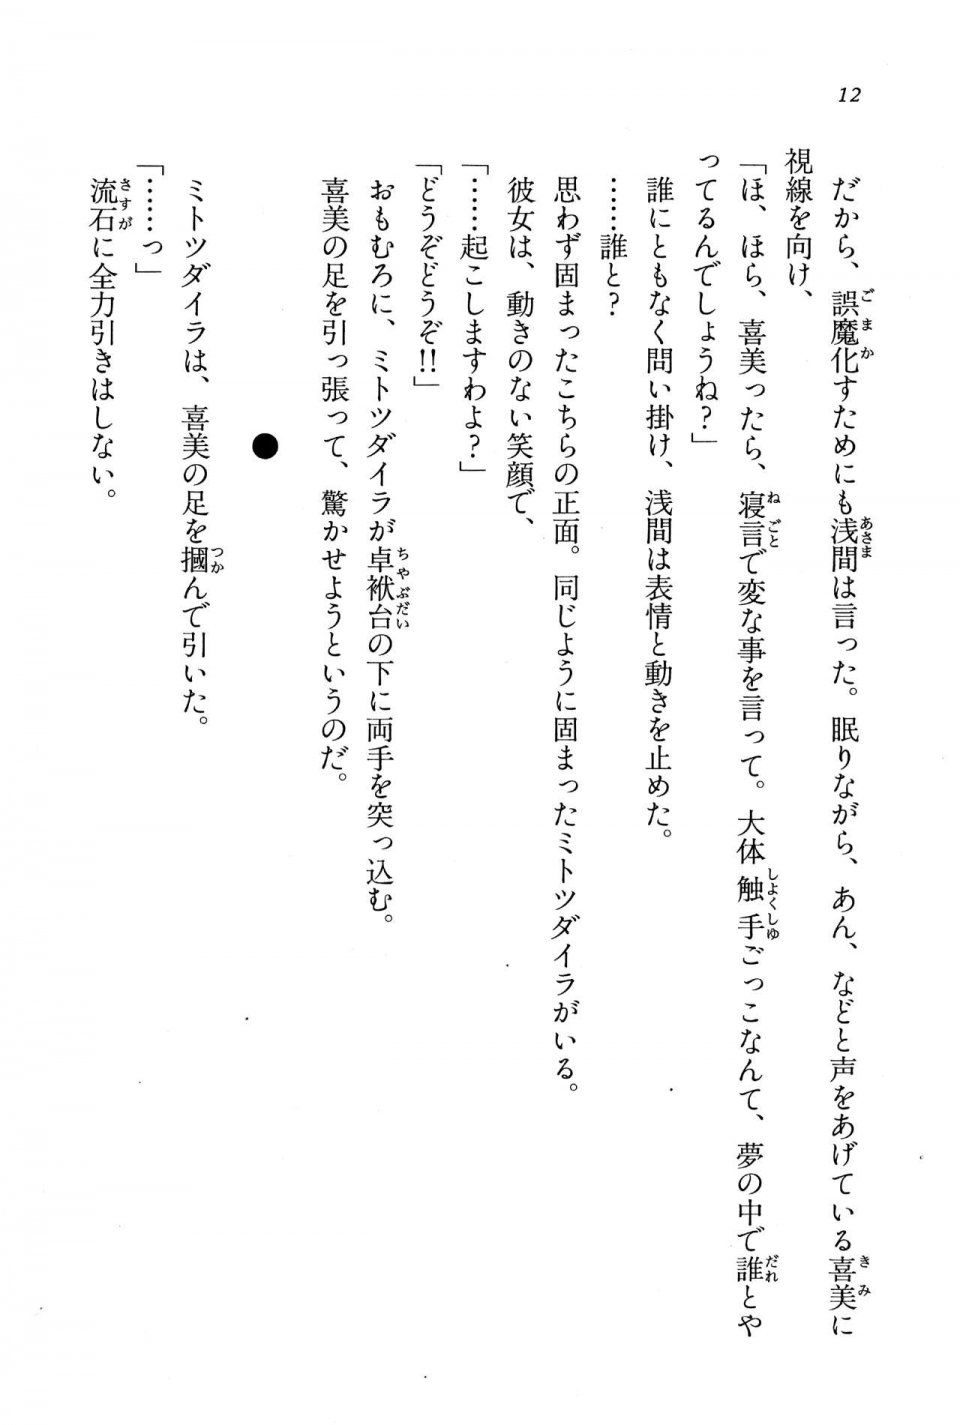 12
だから、誤魔化すためにも浅間は言った。眠りながら、あん、などと声をあげている喜美に
視線を向け、
「ほ、ほら、喜美ったら、寝言で変な事を言って。大体触手ごっこなんて、夢の中で誰とや
ってるんでしょうね？」
誰にともなく問い掛け、浅間は表情と動きを止めた。
……誰と？
思わず固まったこちらの正面。同じように固まったミトツダイラがいる。
彼女は、動きのない笑顔で、
「……起こしますわよ？」
「どうぞどうぞ!!」
おもむろに、ミトツダイラが卓袱台の下に両手を突っ込む。
喜美の足を引っ張って、驚かせようというのだ。
●
ミトツダイラは、喜美の足を摑んで引いた。
「……っ」
流石に全力引きはしない。